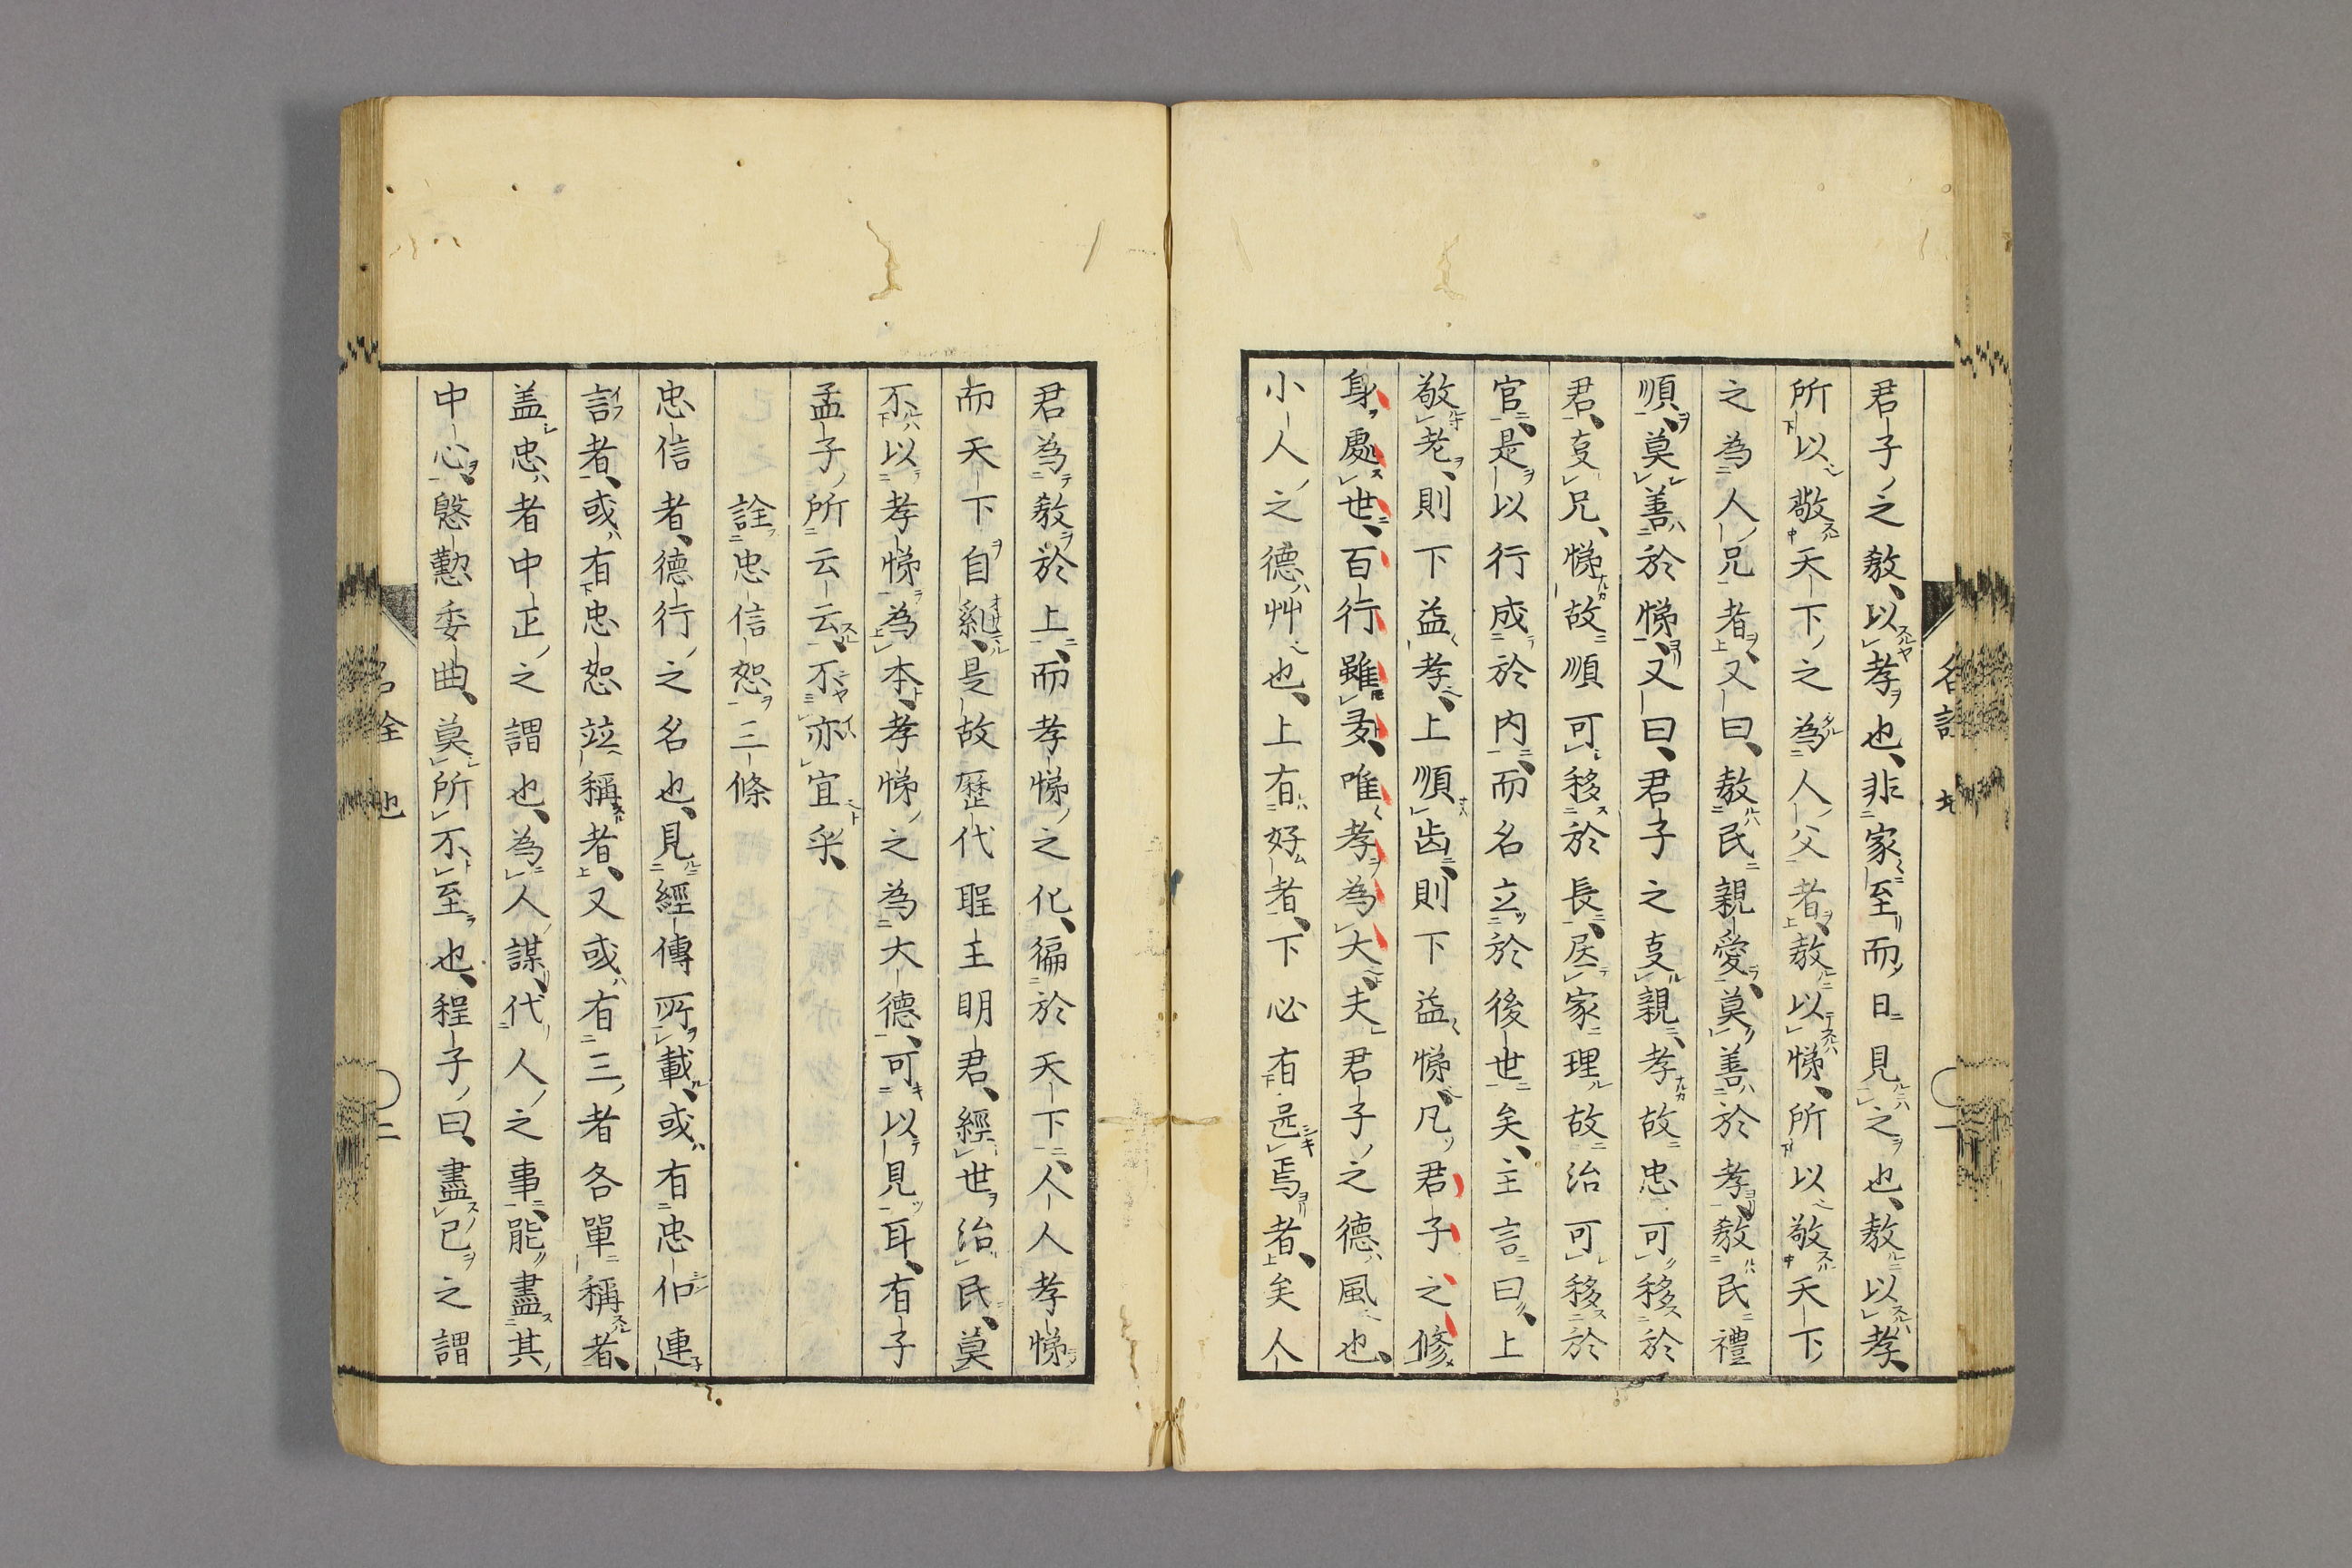 君子之敎以孝也非家至而日見之也敎以孝
所以敬天下之為人父者敎以悌所以敬天下
之為人兄者又曰敎民親愛莫善於孝敎民禮
順莫善於悌又曰君子之㕝親孝故忠可移於
君㕝兄悌故順可移於長居家理故治可移於
官是以行成於内而名立於後世矣主言曰上
敬老則下益孝上順齒則下益悌凡君子之修
身處世百行雖多唯孝為大夫君子之德風也
小人之德艸也上有好者下必有甚焉者矣人
君為敎於上而孝悌之化徧於天下人人孝悌
而天下自糺是故歷代聖主明君經世治民莫
不以孝悌為本孝悌之為大德可以見耳有子
孟子所云云不亦宜乎
詮忠信恕三條
忠信者德行之名也見經傳所載或有忠信連
言者或有忠恕竝稱者又或有三者各單稱者
盖忠者中正之謂也為人謀代人之事能盡其
中心慇懃委曲莫所不至也程子曰盡己之謂